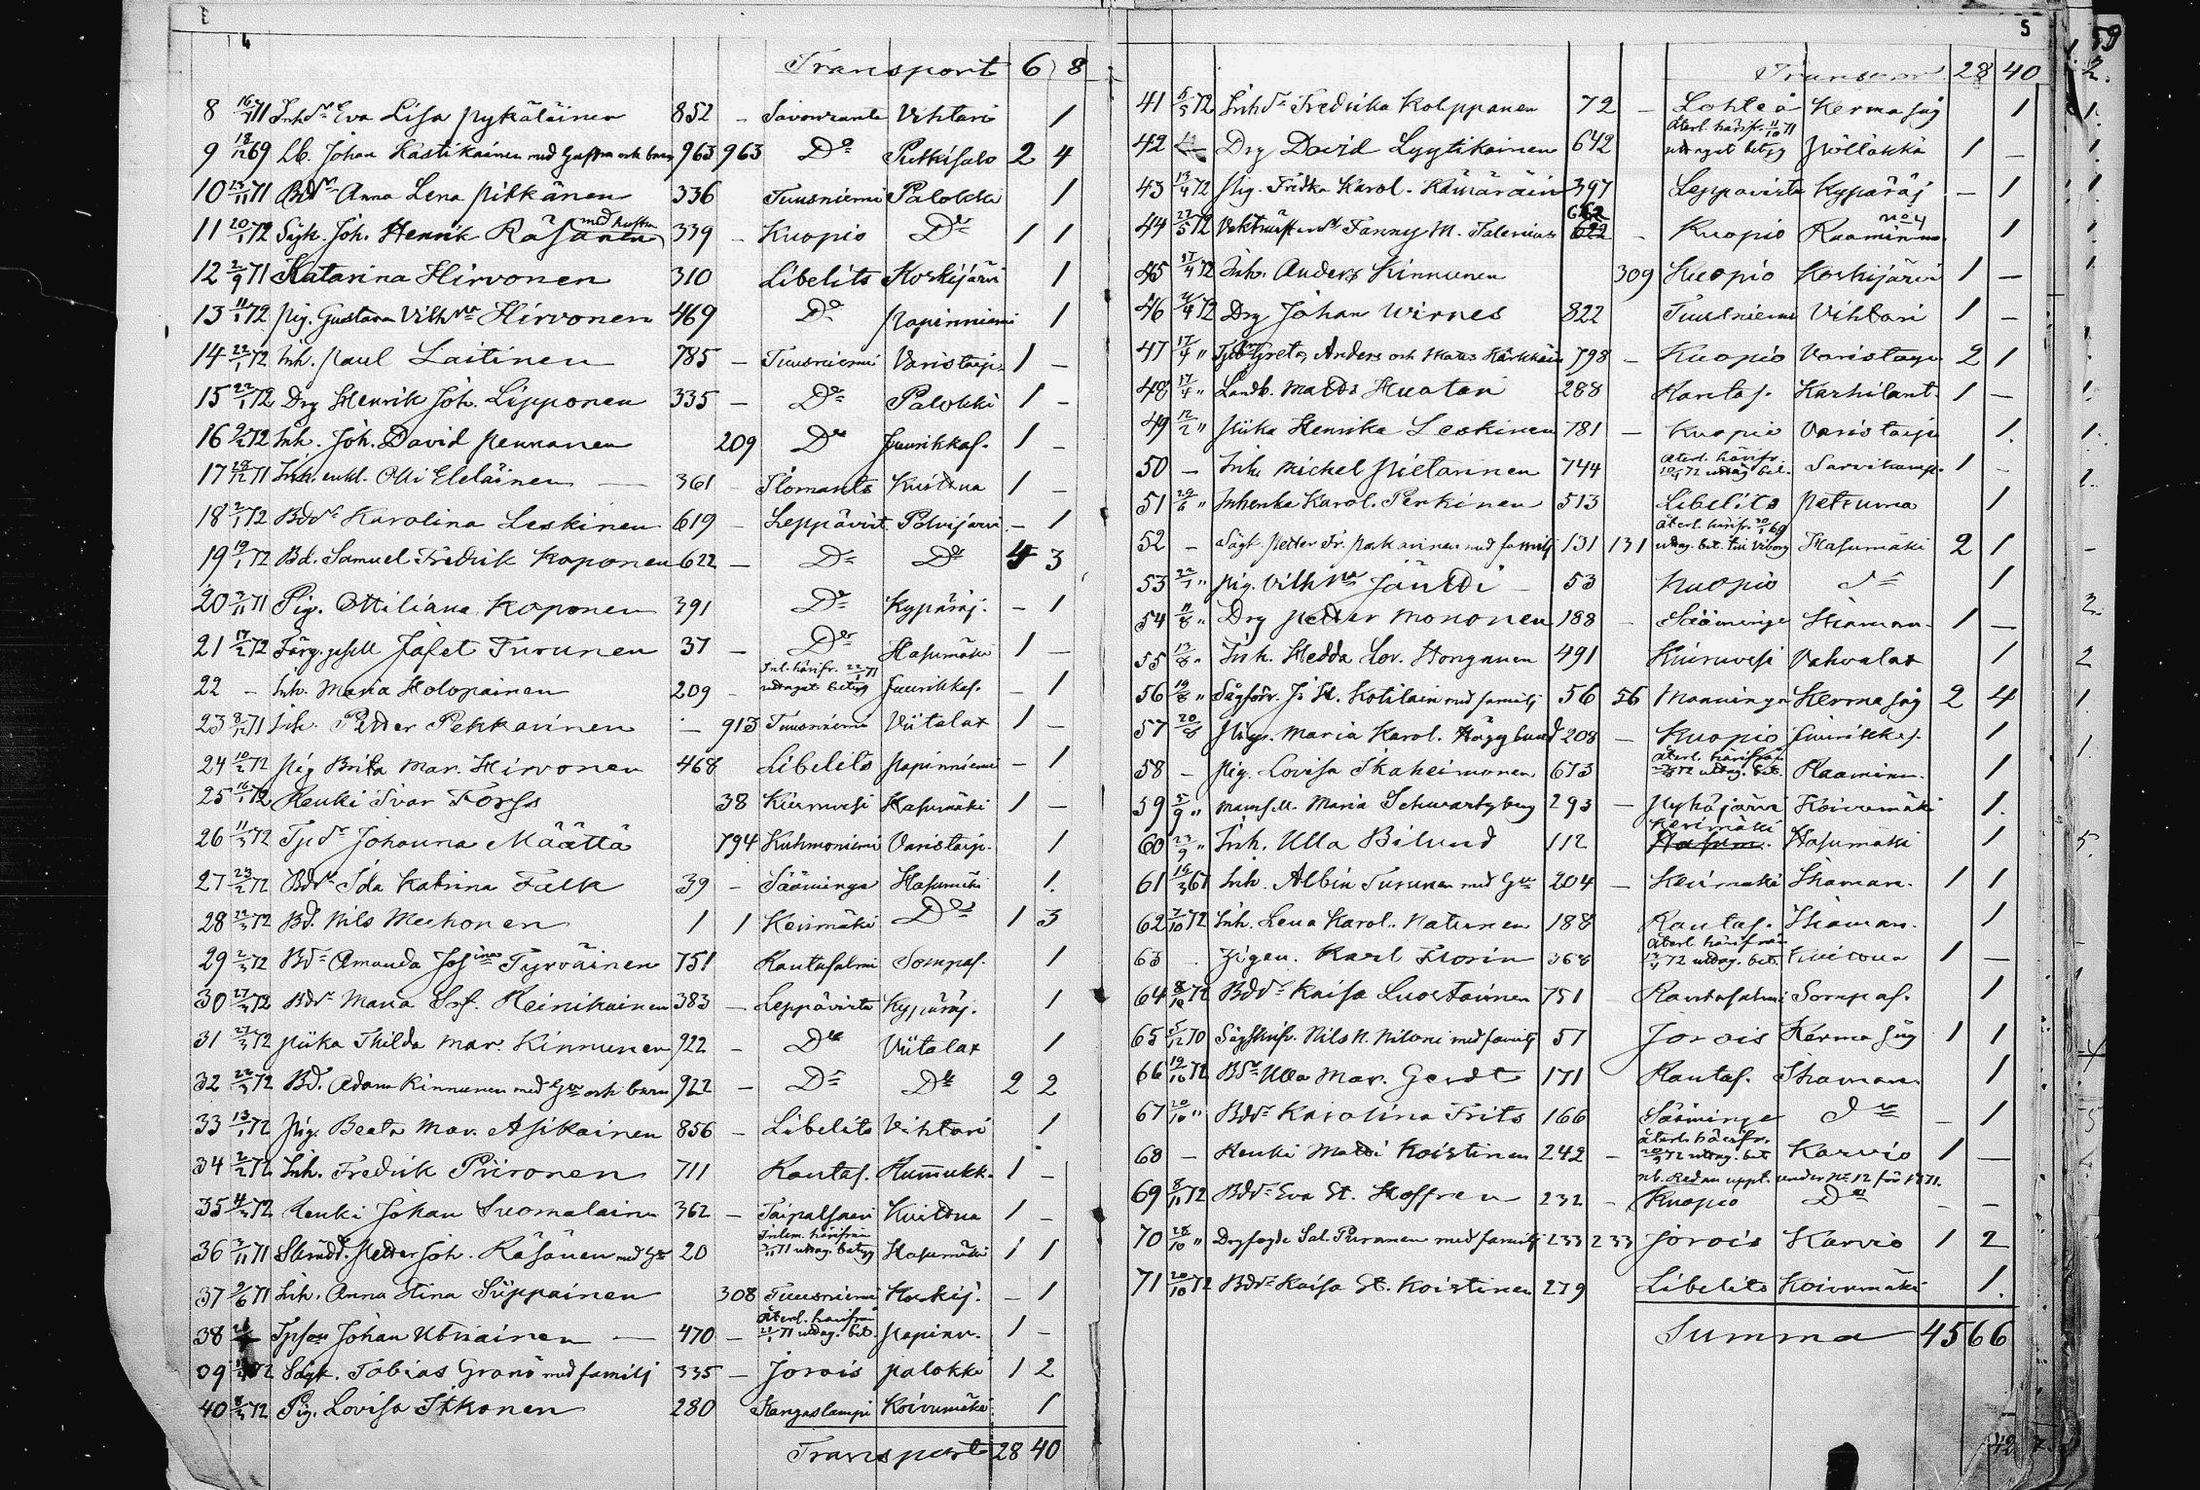 4
Transport 6 8
8 16/1 71 Inh.dr Eva Lisa Pykäläinen 852 – Savonranta Vihtari 1
9 18/12 69 Lb. Johan Kastikainen med hustru och barn 963 963 Do Putkisalo 2 4
10 13/11 71 Bddr Anna Lena Pitkänen 336 Tuusniemi Palokki 1
11 20/1 72 Sågk. Joh. Henrik Räsänen med hustru 339 – Kuopio Do 1 1
12 2/9 71 Katarina Hirvonen 310 Libelits Koskijärvi 1
13 11/1 72 Pig. Gustava Vilh:na Hirvonen 469 Do Papinniemi 1
14 22/1 72 Inh. Paul Laitinen 785 – Tuusniemi Varistaip. 1 –
15 22/1 72 Drg Henrik Joh. Lipponen 335 – Do Palokki 1 –
16 9/2 72 Inh. Joh. David Pennanen 209 Do Juurikkas. 1 –
17 28/12 71 Inh. enkl. Olli Eleläinen — 361 – Ilomants Kuittua 1 –
18 2/1 72 Bddr Karolina Leskinen 619 – Leppävirt Polvijärvi – 1
19 19/1 72 Bd. Samuel Fredrik Koponen 622 – Do Do 4 3
20 3/11 71 Pig. Ottiliana Koponen 391 Do Kypäräj. – 1
21 17/2 72 Färg.gesell Jafet Turunen 37 – Do Hasumäki 1 –
22 – Inh. Maria Holopainen 209 – Inl. härifr. 22/1 71 uttaget betyg Juurikkas. – 1
23 8/12 71 Inh. Petter Pekkarinen – 913 Tuusniemi Viitalax 1 –
24 10/2 72 Pig Brita Mar. Hirvonen 468 Libelits Papinniemi – 1
25 16/1 72 Renki Ivar Forss 38 Kiurnvesi Hasumäki 1 –
26 11/3 72 Tjdr Johanna Määttä 794 Kuhmoniemi Varistaip. 1
27 23/2 72 Bddr Ida Katrina Falk 39 – Sääminge Hasumäki 1.
28 22/3 72 Bd. Nils Mechonen 1 1 Kerimäki Do 1 3
29 2/3 72 Bdr Amanda Jos:ina Tyrväinen 751 Rantasalmi Sompas. 1
30 27/3 72 Bddr Maria Sof. Reinikainen 383 – Leppävirta Kypäräj. 1
31 27/3 72 Piika Thilda Mar. Kinnunen 922 – Do Viitalax 1
32 22/3 72 Bd. Adam Kinnunen med hu och barn 922 – Do Do 2 2
33 13/1 72 Pig. Beata Mar. Asikainen 856 – Libelits Vihtari 1
34 2/2 72 Inh. Fredrik Piironen 711 Rantas. Hummukk. 1 –
35 4/3 72 Renki Johan Suomalainen 362 – Taipalsaari Kuittua 1 –
36 3/11 71 Petter Joh. Räsänen med hu 20 Inlem. härifrån 3/11 71 uttag. betyg Hasumäki 1 1
37 9/6 71 Inh. Anna Stina Siippainen 308 Tuusniemi Koskij. – 1
38 Johan Utriainen — 470 – Återl. härifrån 21/1 71 uttag. bet. Papinn. 1 –
39 72 Sågk. Tobias Granö med familj 335 – Jorois Palokki 1 2
40 8/3 72 Pig. Lovisa Itkonen 280 Kangaslampi Koivumäki 1
Transport 28 40
5
Transport 28 40
41 5/5 72 Inhdr Fredrika Kolppanen 72 – Lohteå Kerma såg 1
42 – Drg David Lyytikainen 642 Återl. härifr. 11/10 71 uttaget betyg Pölläkkä 1 –
43 13/4 72 Pig. Fridka Karol. Kämäräinen 397 Leppävirta Kypäräj – 1
44 27/5 72 Fanny M. Talenius – Kuopio Raaminm. 1
45 17/4 72 Inh. Anders Kinnunen 309 Kuopio Koskijärvi 1 –
46 4/4 72 Drg Johan Wirnes 822 Tuusniemi Vihtari 1 –
47 17/4 " Greta, Anders och Mats Kärkkäin 798 – Kuopio Varistaip 2 1
48 17/4 " Landb. Matts Huatari 288 Rantas. Karhilant. 1 –
49 12/2 " Piika Henrika Leskinen 781 – Kuopio Varistaip 1.
50 – Inh. Michel Pietarinen 744 Återl. härifr. 10/5 72 uttag bet. Sarvikump. 1 –
51 29/6 " Inhenka Karol. Parkinen 513 Libelits Petruma 1
52 – Sågk. Petter Fr. Pakarinen med familj 131 131 Återl. härifr. 20/1 69 uttag. bet. till Viborg Hasumäki 2 1
53 22/7 " Pig. Vilh:na Jäntti – 53 Kuopio Do 1
54 11/8 " Drg Petter Mononen 188 – Sääminge Ihaman. 1 –
55 13/8 " Inh. Hedda Lov. Honganen 491 Kiuruvesi Vahvalax 1
56 19/8 " Sågförv. J. H. Kotilain med familj 56 56 Manninga Kerma såg 2 4
57 20/8 Pigr. Maria Karol. Häggbund 208 – Kuopio Juurikkas. 1
58 – Pig. Lovisa Ikäheimonen 673 Återl. härifrån 72 uttag. bet. Raaminm. 1
59 5/9 " Mamsell Maria Schwartzberg 293 – Pyhäjärvi Koivumäki 1.
60 23/9 " Inh. Ulla Bilund 112 Kerimäki Hasumäki 1
61 16/3 67 Inh. Albin Turunen med hu 204 – Kerimäki Ihaman. 1 1
62 7/10 72 Inh. Lena Karol. Natunen 188 Rantas. Ihaman. 1
63 . Zigen. Karl Florin 368 Återl. härifrån 13/4 72 uttag. bet. Kuittua 1 –
64 8/10 72 Bddr Kaisa Luostainen 751 Rantasalmi Sompas. 1
65 5/12 70 Nils N. Niloni med familj 57 Jorois Kerma såg 1 1
66 19/10 72 Bdr Ulla Mar. Gerdt 171 Rantas. Ihaman. 1
67 20/10 " Bddr Karolina Frits 166 Sääminge Do – 1
68 – Renki Matti Koistinen 242 – Återl. härifr. 20/9 72 uttag. bet Karvio 1 –
nb. Redan uppt. under No 12 för 1871.
69 8/11 72 Bddr Eva St. Hoffren 232 – Kuopio Do – –
70 28/10 " Drgfogde Sal. Puranen med familj 233 233 Jorois Karvio 1 2
71 20/10 72 Bddr Kaisa St. Koistinen 279 Libelits Koivumäki 1.
Summa 45 66
59